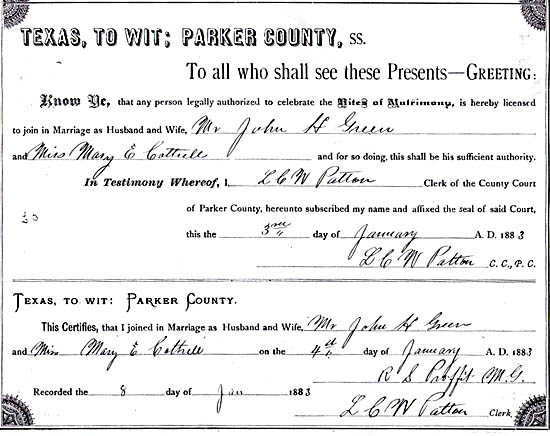 TEXAS, TO WIT; PARKER COUNTY, ss.
To all who shall see these Presents—GREETING:
Know Ye, that any person legally authorized to celebrate the Rites of Matrimony, is hereby licensed
to join in Marriage as Husband and Wife, Mr John H Green
and Miss Mary E Cottrell and for so doing, this shall be his sufficient authority.
In Testimony Whereof, I, L C W Patton Clerk of the County Court
of Parker County, hereunto subscribed my name and affixed the seal of said Court,
this the 3rd day of January A. D. 1883
L C W Patton C. C., P. C.
TEXAS, TO WIT: PARKER COUNTY.
This Certifies, that I joined in Marriage as Husband and Wife, Mr John H Green
and Miss Mary E Cottrell on the 4th day of January A. D. 1883
R S Proffit M.G.
Recorded the 8 day of Jan 1883
L C W Patton Clerk